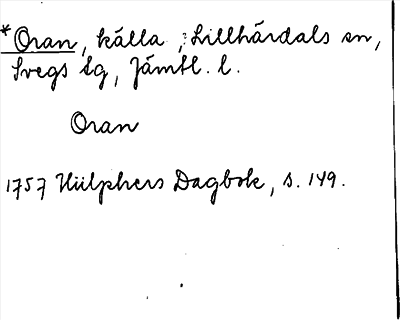 *Oran, källa, Lillhärdals sn,
Svegs tg, Jämtl. l.
Oran
1757 Hülphers Dagbok, s. 149.